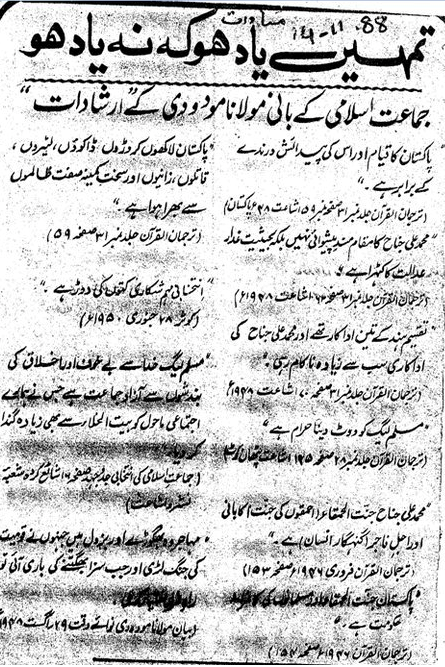 مساوات 14-11-88
تمہیں یاد ہو کہ نہ یاد ہو
جماعت اسلامی کے بانی مولانا مودودی کے "ارشادات"
"پاکستان کا قیام اور اس کی پیدائش درندے
کے برابر ہے۔"
(ترجمان القرآن جلد نمبر ۳۱ صفحہ نمبر ۵۹ اشاعت ۴۸ء پاکستان)
"محمد علی جناح کا مقام مسند پیشوائی نہیں بلکہ بحیثیت غدار
عدالت کا کٹہرا ہے"
(ترجمان القرآن جلد نمبر ۳۱ صفحہ اشاعت ۱۹۴۸ء)
تقسیم ہند کے تین اداکار تھے اور محمد علی جناح کی
اداکاری سب سے زیادہ ناکام رہی۔"
(ترجمان القرآن جلد نمبر ۳۱ صفحہ ۷۰ اشاعت ۱۹۴۸ء)
"مسلم لیگ کو ووٹ دینا حرام ہے"
(ترجمان القرآن جلد نمبر ۲۸ صفحہ ۱۴۵ اشاعت پٹھان کوٹ)
"محمد علی جناح جنت الحمقا (احمقوں کی جنت) کا بانی
اور اجل فاجر (گنہگار انسان) ہے۔"
(ترجمان القرآن فروری ۱۹۴۶ء صفحہ ۱۵۳)
"پاکستان جنت الحمقا اور مسلمانوں کی کافرانہ
حکومت ہے۔"
(ترجمان القرآن ۱۹۴۶ء صفحہ ۱۵۴)
"پاکستان لاکھوں کروڑوں، ڈاکوؤں، لٹیروں،
قاتلوں، زانیوں اور سخت کمینہ صفت ظالموں
سے بھرا ہوا ہے۔"
(ترجمان القرآن جلد نمبر ۳۱ صفحہ ۵۹)
"انتخابی مہم شکاری کتوں کی دوڑ ہے۔"
(کوثر ۲۸ جنوری ۱۹۵۰ء)
"مسلم لیگ خدا سے بے خوف اور اخلاق کی
بندشوں سے آزاد جماعت ہے جس نے ہمارے
اجتماعی ماحول کو بیت الخلا سے بھی زیادہ گندا
کر دیا۔"
(جماعت اسلامی کی انتخابی جدوجہد صفحہ ۶ شائع کردہ شعبہ
نشر و اشاعت)
"مہاجر وہ بھگوڑے اور بزدل ہیں جنہوں نے قومیت
کی جنگ لڑی اور جب سزا بھگتنے کی باری آئی تو
(بیان مولانا مودودی نوائے وقت ۲۹ اگست ۱۹۴۸ء)